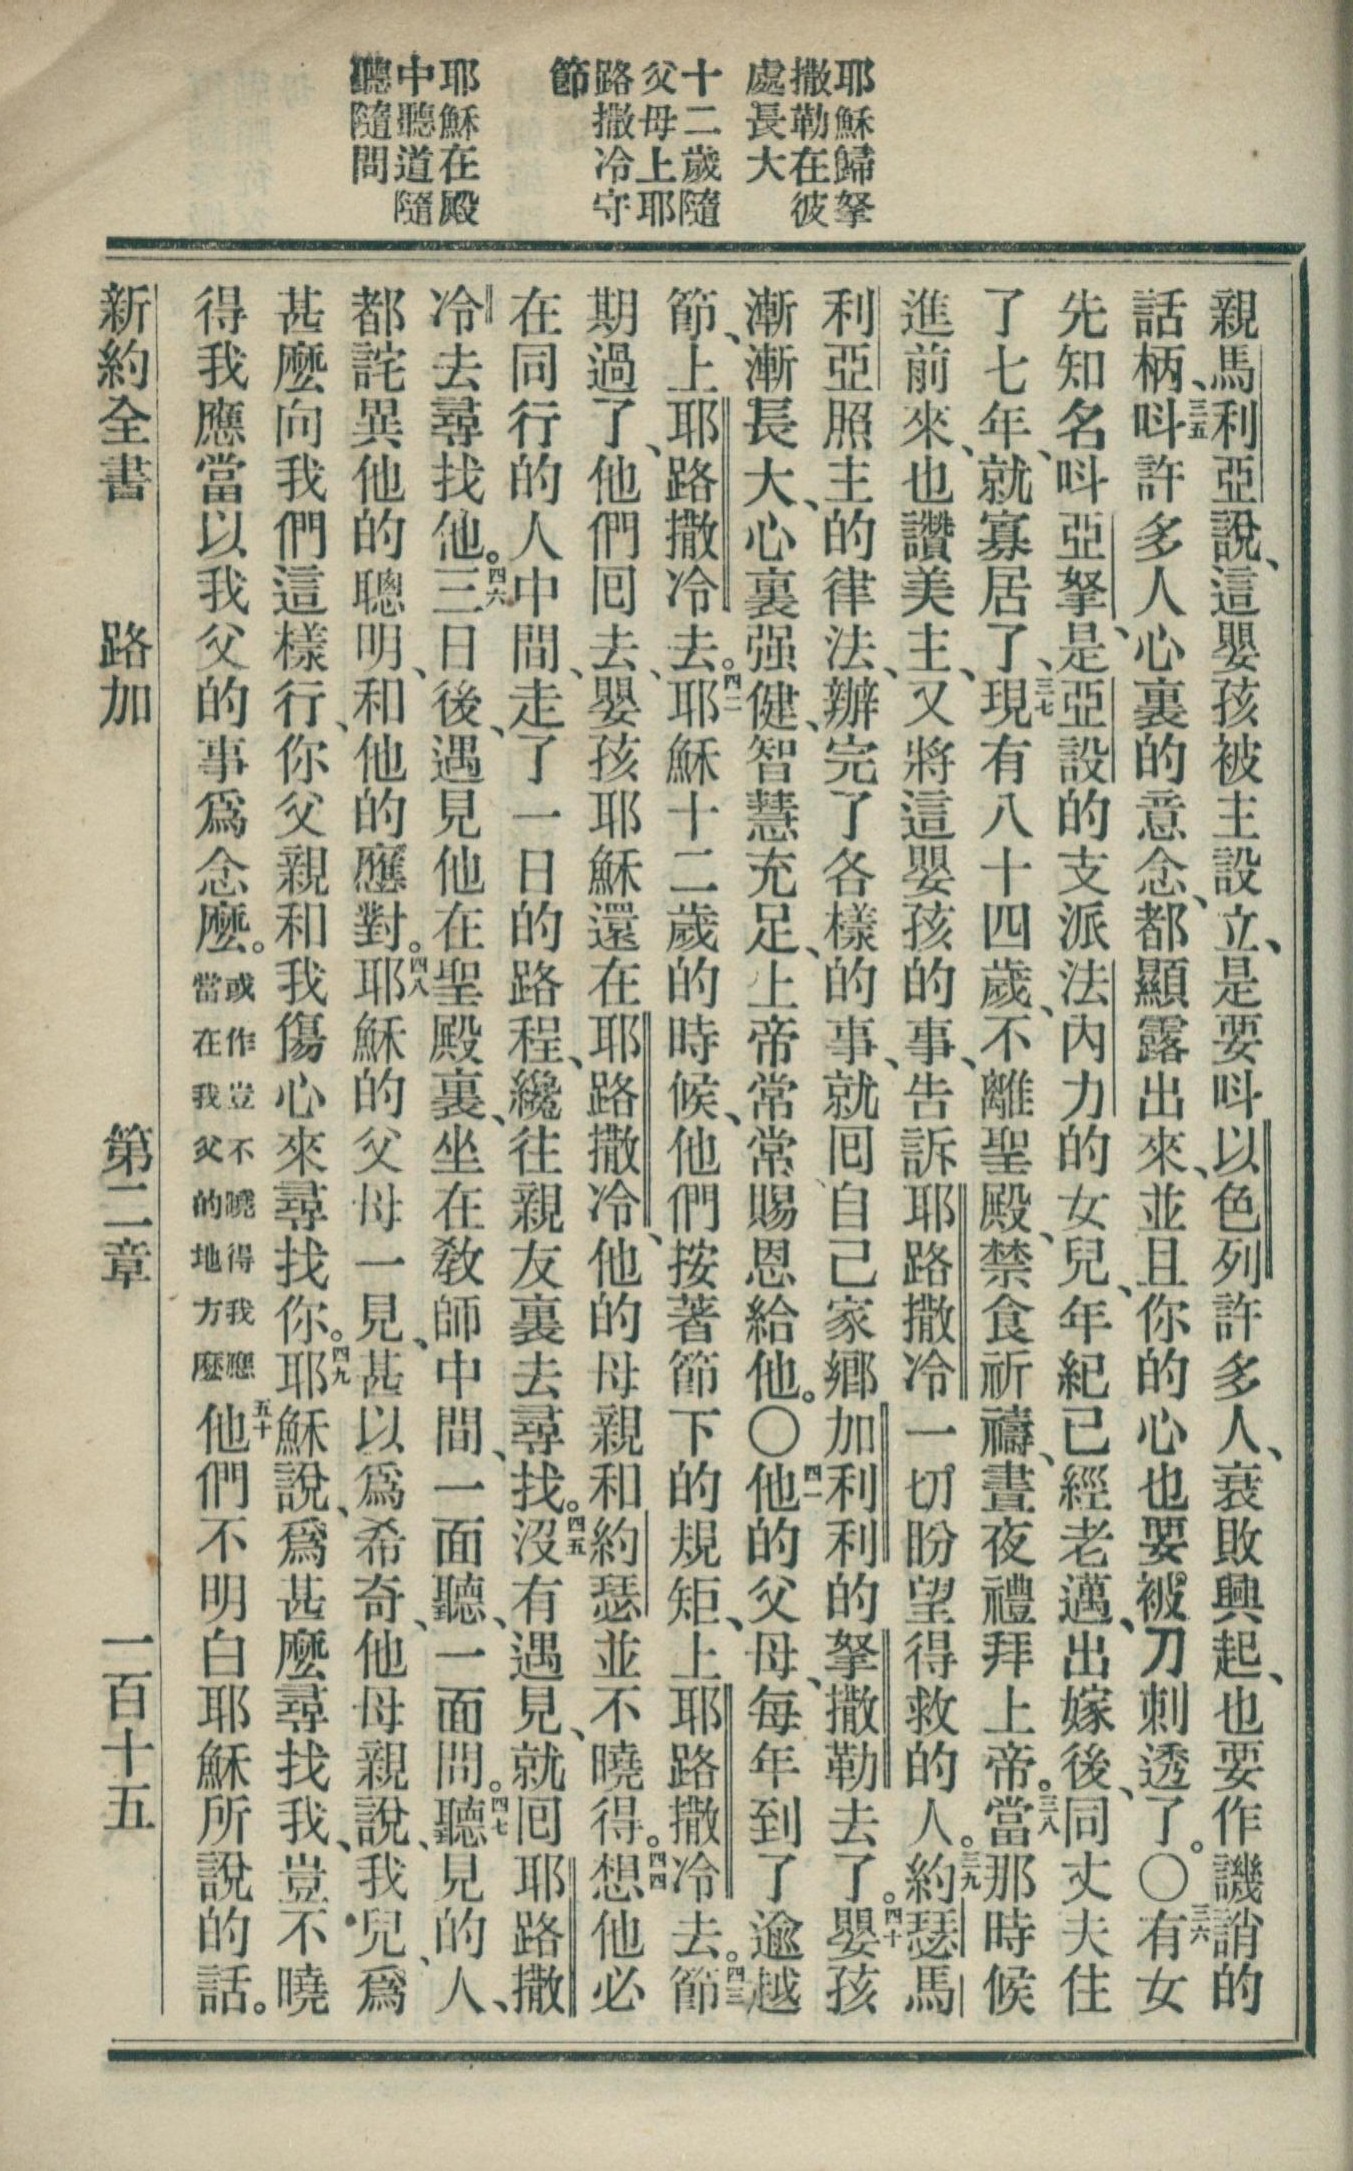 耶穌歸拏
撒勒在彼
處長大
十二歲隨
父母上耶
路撒冷守
節
耶穌在殿
中聽道隨
聽隨問
親馬利亞說、這嬰孩被主設立、是要呌以色列許多人、衰敗興起、也要作譏誚的
話柄、三五呌許多人心裏的意念、都顯露出來、並且你的心也要被刀刺透了。〇三六有女
先知名呌亞拏、是亞設的支派法內力的女兒、年紀已經老邁、出嫁後、同丈夫住
了七年、就寡居了、三七現有八十四歲、不離聖殿、禁食祈禱、晝夜禮拜上帝。三八當那時候
進前來、也讚美主、又將這嬰孩的事、告訴耶路撒冷一切盼望得救的人。三九約瑟馬
利亞照主的律法、辦完了各樣的事、就囘自己家鄉加利利的拏撒勒去了。四十嬰孩
漸漸長大、心裏强健、智慧充足、上帝常常賜恩給他。〇四一他的父母、每年到了逾越
節、上耶路撒冷去。四二耶穌十二歲的時候、他們按著節下的規矩、上耶路撒冷去。四三節
期過了、他們囘去、嬰孩耶穌還在耶路撒冷、他的母親和約瑟並不曉得。四四想他必
在同行的人中間、走了一日的路程、纔往親友裏去尋找。四五沒有遇見、就囘耶路撒
冷去尋找他。四六三日後、遇見他在聖殿裏、坐在敎師中間、一面聽、一面問。四七聽見的人、
都詫異他的聰明、和他的應對。四八耶穌的父母一見、甚以爲希奇、他母親說、我兒、爲
甚麼向我們這樣行、你父親和我傷心來尋找你。四九耶穌說、爲甚麼尋找我、豈不曉
得我應當以我父的事爲念麼。或作豈不曉得我應當在我父的地方麼五十他們不明白耶穌所說的話。
新約全書 路加 第二章 一百十五